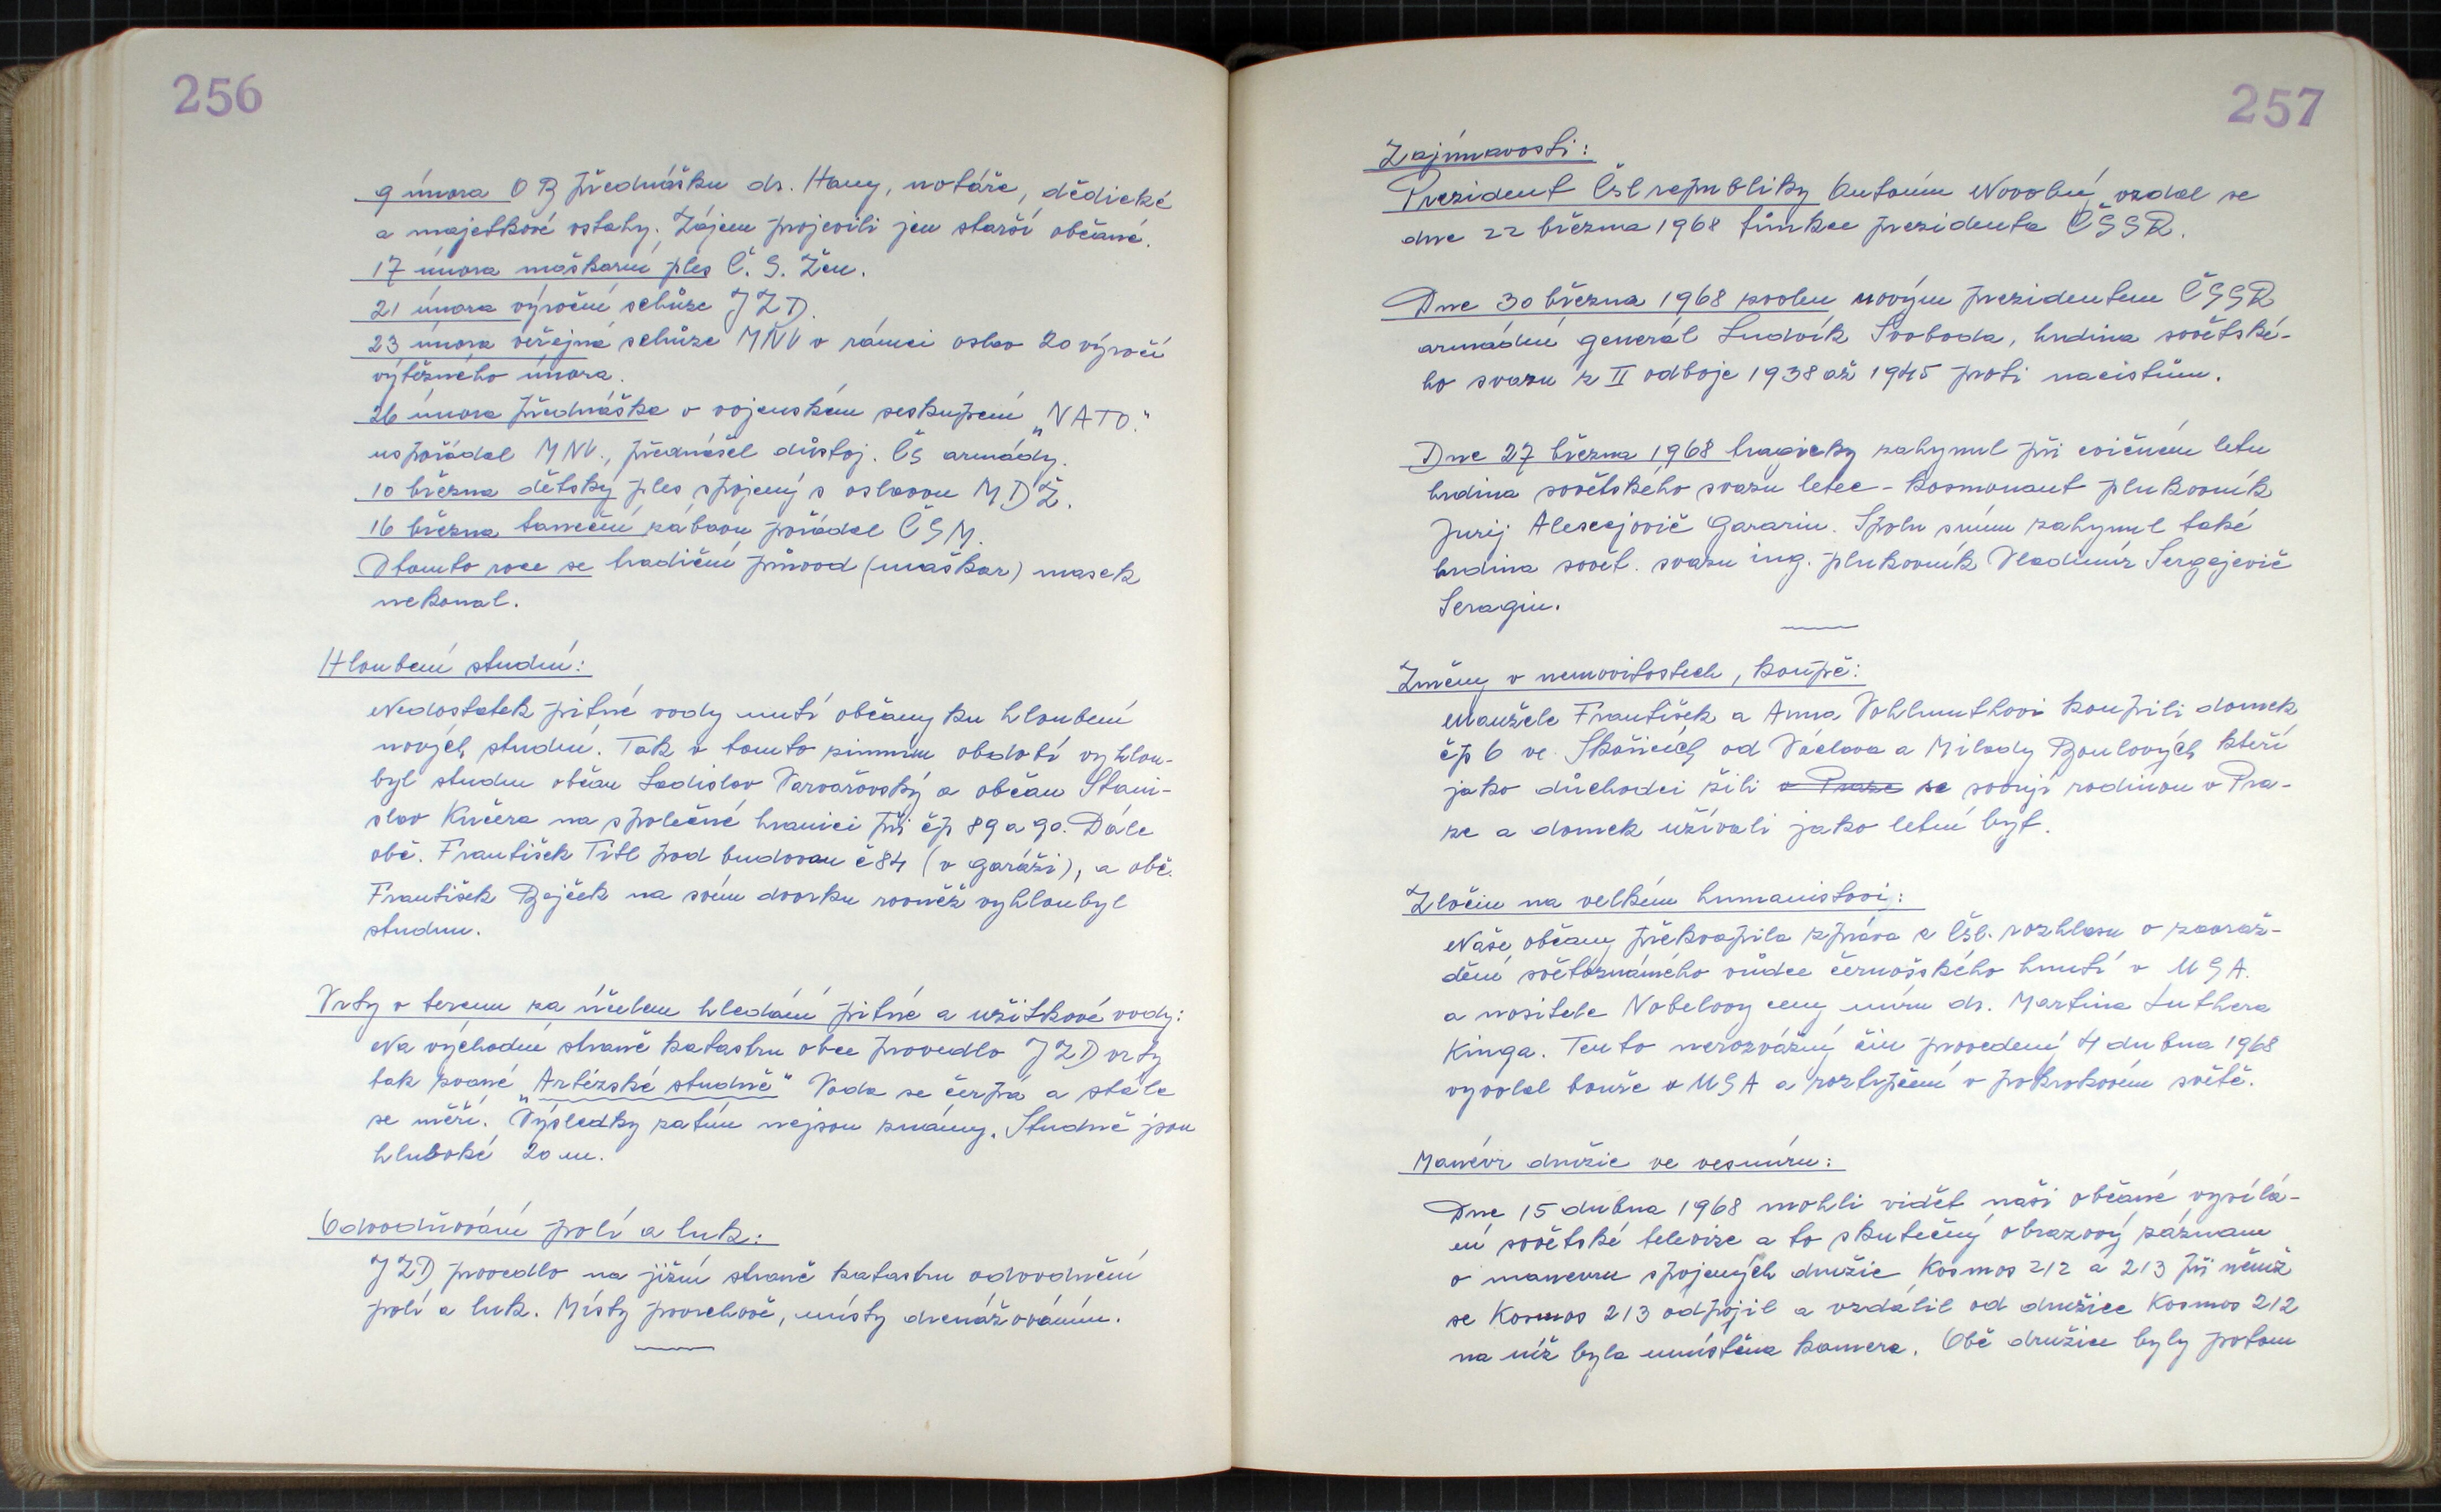 256
9 února O B přednášku dr. Hany, notáře, dědické
a majetkové vstahy. Zájem projevili jen starší občané.
17 února maškarní ples Č. S. Žen.
21 února výroční schůze JZD.
23 února veřejná schůze MNV v rámci oslav 20 výročí
výtězného února.
26 února přednáška o vojenském seskupení „NATO."
uspořádal MNV., přednášel důstoj. Čs armády.
10 března dětský ples spojený s oslavou MDŽ.
16 března taneční zábavu pořádal ČSM.
V tomto roce se tradiční průvod (maškar) masek
nekonal.
Hloubení studní:
Nedostatek pitné vody nutí občany ku hloubení
nových studní. Tak v tomto zimním období vyhlou-
byl studnu občan Ladislav Varvařovský a občan Stani-
slav Kučera na společné hranici při čp 89 a 90. Dále
obč. František Titl pod budovou č 84 (v garáži), a obč.
František Zajíček na svém dvorku rovněž vyhloubyl
studnu.
Vrty v terenu za účelem hledání pitné a užitkové vody:
Na východní straně katastru obce provedlo JZD vrty
tak zvané „Artézské studně" Voda se čerpá a stále
se měří. Výsledky zatím nejsou známy. Studně jsou
hluboké 20 m.
Odvodňování polí a luk:
JZD provedlo na jižní straně katastru odvodnění
polí a luk. Místy povrchově, místy drenážováním.
257
Zajímavosti:
Prezident Čsl republiky Antonín Novotný vzdal se
dne 22 března 1968 funkce prezidenta ČSSR.
Dne 30 března 1968 zvolen novým prezidentem ČSSR
armádní generál Ludvík Svoboda, hrdina sovětské-
ho svazu z II odboje 1938 až 1945 proti nacistům.
Dne 27 března 1968 tragicky zahynul při cvičném letu
hrdina sovětského svazu letec - kosmonaut plukovník
Jurij Alescejovič Gararin. Spolu sním zahynul také
hrdina sovět. svazu ing. plukovník Vladimír Sergejevič
Seragin.
Změny v nemovitostech, koupě:
Manžele František a Anna Vohlmuthovi koupili domek
čp 6 ve Skořicích od Václava a Milady Boulových kteří
jako důchodci žili v Praze se sovjí rodinou v Pra-
ze a domek užívali jako letní byt.
Zločin na velkém humanistovi:
Naše občany překvapila zpráva z Čsl. rozhlasu o zavraž-
dění světoznámého vůdce černošského hnutí v USA.
a nositele Nobelovy ceny míru dr. Martina Luthera
Kinga. Tento nerozvážný čin provedený 4 dubna 1968
vyvolal bouře v USA a roztrpčení v pokrokovém světě.
Manévr družic ve vesmíru:
Dne 15 dubna 1968 mohli vidět naši občané vysílá-
ní sovětské televize a to skutečný obrazový záznam
o manevru spojených družic Kosmos 212 a 213 při němž
se Kosmos 213 odpojil a vzdálil od družice Kosmos 212
na níž byla umístěna kamera. Obě družice byly potom